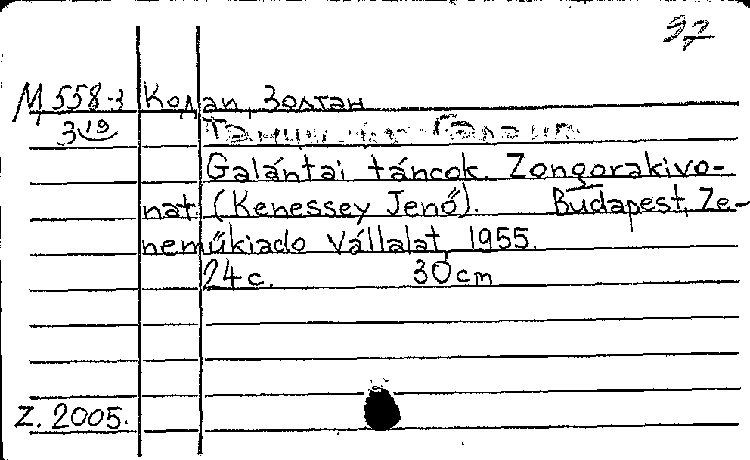 37
М 558-3 Кодаи, Золтан
З 19
Танци от Галанта
Galántai táncok. Zongorakivo-
nat. (Kenessey Jenő). Budapest, Ze-
neműkiado Vállalat, 1955.
24 с. 30 cm
Z. 2005.